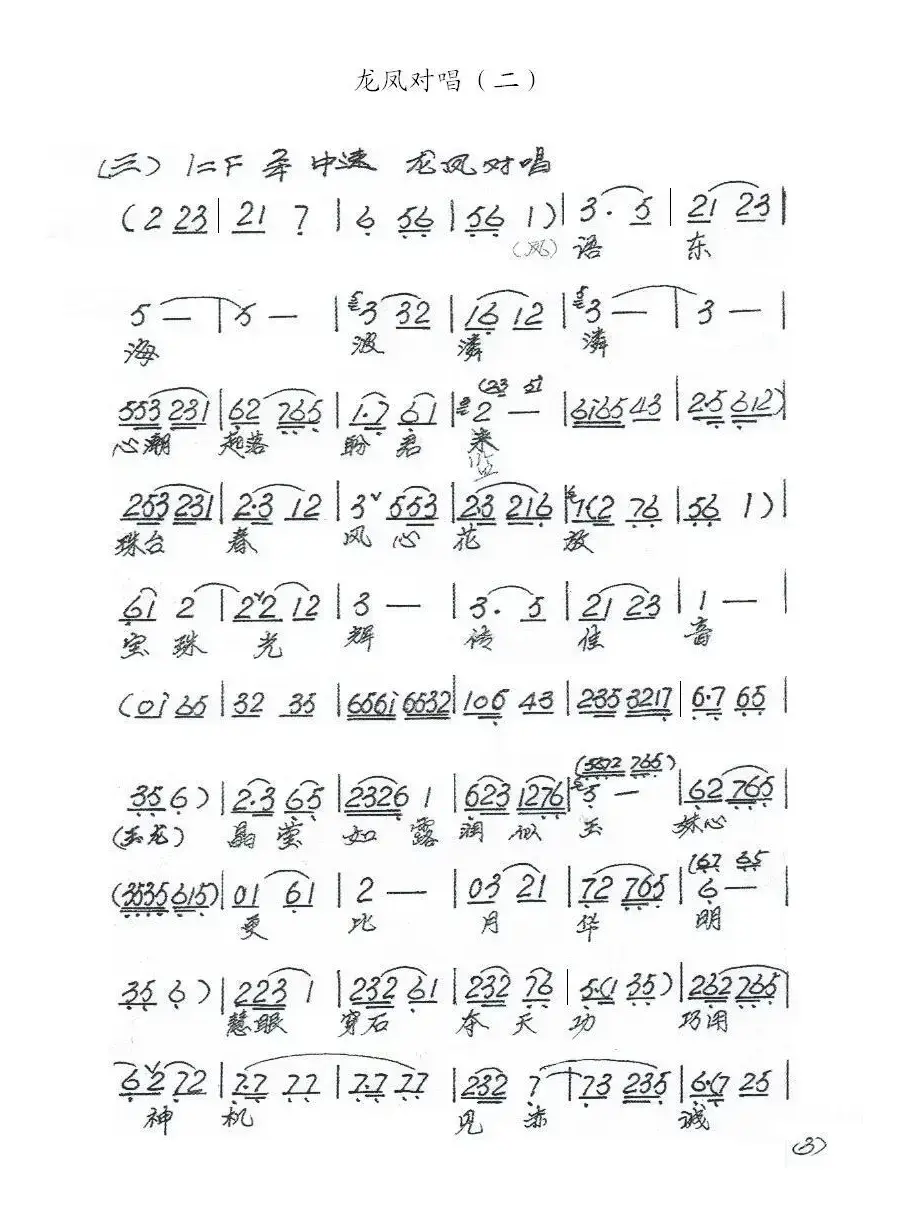 龙凤对唱（二）
（三）1=F 中速 龙凤对唱
(2 23 | 21 7 | 6 56 | 56 1) | 3· 5 | 21 23 |
（凤）语 东
5 — | 5 — | 3 32 | 16 12 | 3 — | 3 — |
海 波 潾 潾
(23 5i
553 231 | 62 765 | 1·7 61 | 2 — | 6i65 43 | 2·5 612) |
心潮 起落 盼 君 来
253 231 | 2·3 12 | 3 553 | 2·3 216 | 1(2 76 | 56 1) |
珠台 春 风 心 花 放
61 2 | 2 2 12 | 3 — | 3· 5 | 21 23 | 1 — |
宝 珠 光 辉 传 佳 音
(0i 65 | 32 35 | 656i 6532 | 106 43 | 235 3217 | 6·7 65 |
(5672 765)
35 6) | 2·3 65 | 2326 1 | 623 1276 | 5 — | 62 765 |
（玉龙） 晶 莹 如 露 润 似 玉 姝心
(67 65
(3535 615) | 01 61 | 2 — | 03 21 | 72 765 | 6 — |
更 比 月 华 明
35 6) | 223 1 | 232 61 | 232 76 | 5·(1 35) | 262 765 |
慧眼 穿石 夺 天 功 巧用
6 2 72 | 7·7 77 | 7·7 77 | 232 7 | 73 235 | 6·(7 25 |
神 机 见 赤 诚
(3)